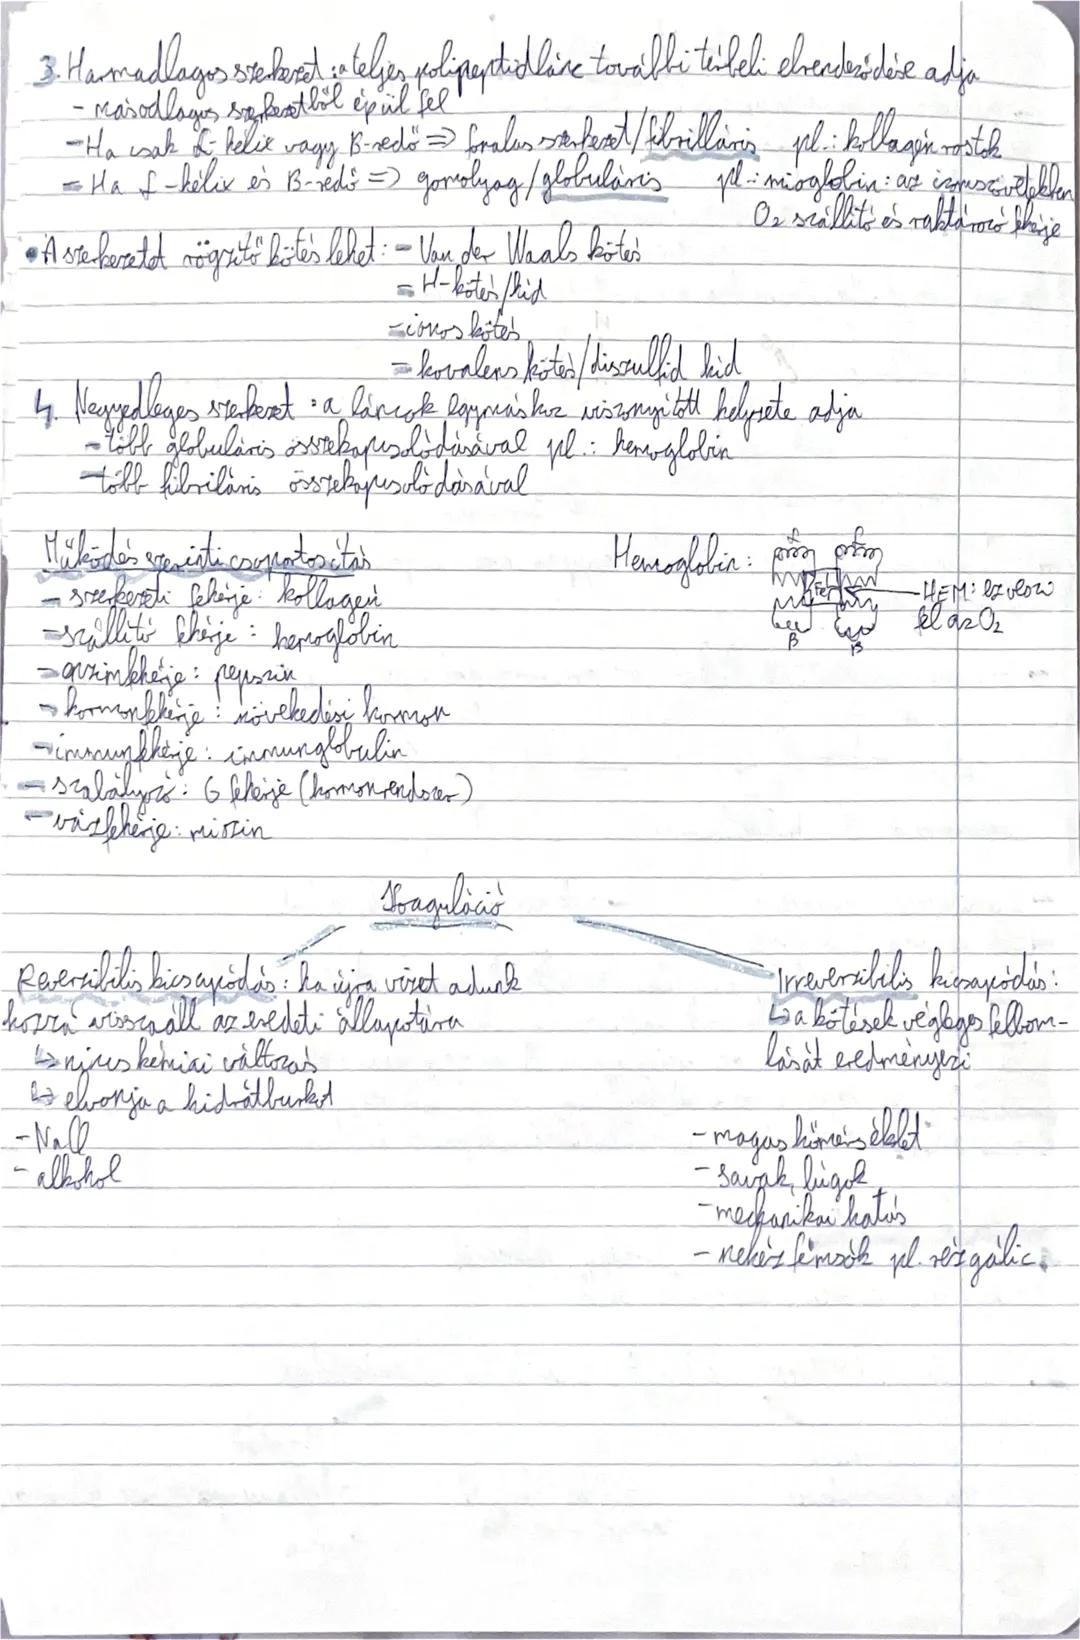 3. Harmadlagos szerkezet: a teljes polipeptidlánc további térbeli elrendeződése adja
- másodlagos szerkezetből épül fel
- Ha csak α-hélix vagy B-redő => fonalas szerkezet/fibrilláris pl.: kollagén rostok
- Ha α-hélix és B-redő => gomolyag/globuláris pl.: mioglobin: az izomszövetekben
O₂ szállító és raktározó fehérje
• A szerkezetet rögzítő kötés lehet: - Van der Waals kötés
- H-kötés/híd
- ionos kötés
- kovalens kötés/diszulfid híd
4. Negyedleges szerkezet: a láncok egymáshoz viszonyított helyzete adja
- több globuláris összekapcsolódásával pl.: hemoglobin
- több fibriláris összekapcsolódásával
Működés szerinti csoportosítás
- szerkezeti fehérje: kollagén
- szállító fehérje: hemoglobin
- enzimfehérje: pepszin
- hormonfehérje: növekedési hormon
- immunfehérje: immunglobulin
- szabályozó: G fehérje (hormonrendszer)
- vázfehérje: miozin
Hemoglobin:
α α
Fe
HEM: ez veszi
fel az O₂
B B
Koaguláció
Reverzibilis kicsapódás: ha újra vizet adunk
hozzá visszaáll az eredeti állapotára
↳ nincs kémiai változás
↳ elvonja a hidrátburkot
- NaCl
- alkohol
Irreverzibilis kicsapódás:
↳ a kötések végleges felbom-
lását eredményezi
- magas hőmérséklet
- savak, lúgok
- mechanikai hatás
- nehéz fémsók pl. rézgálic.